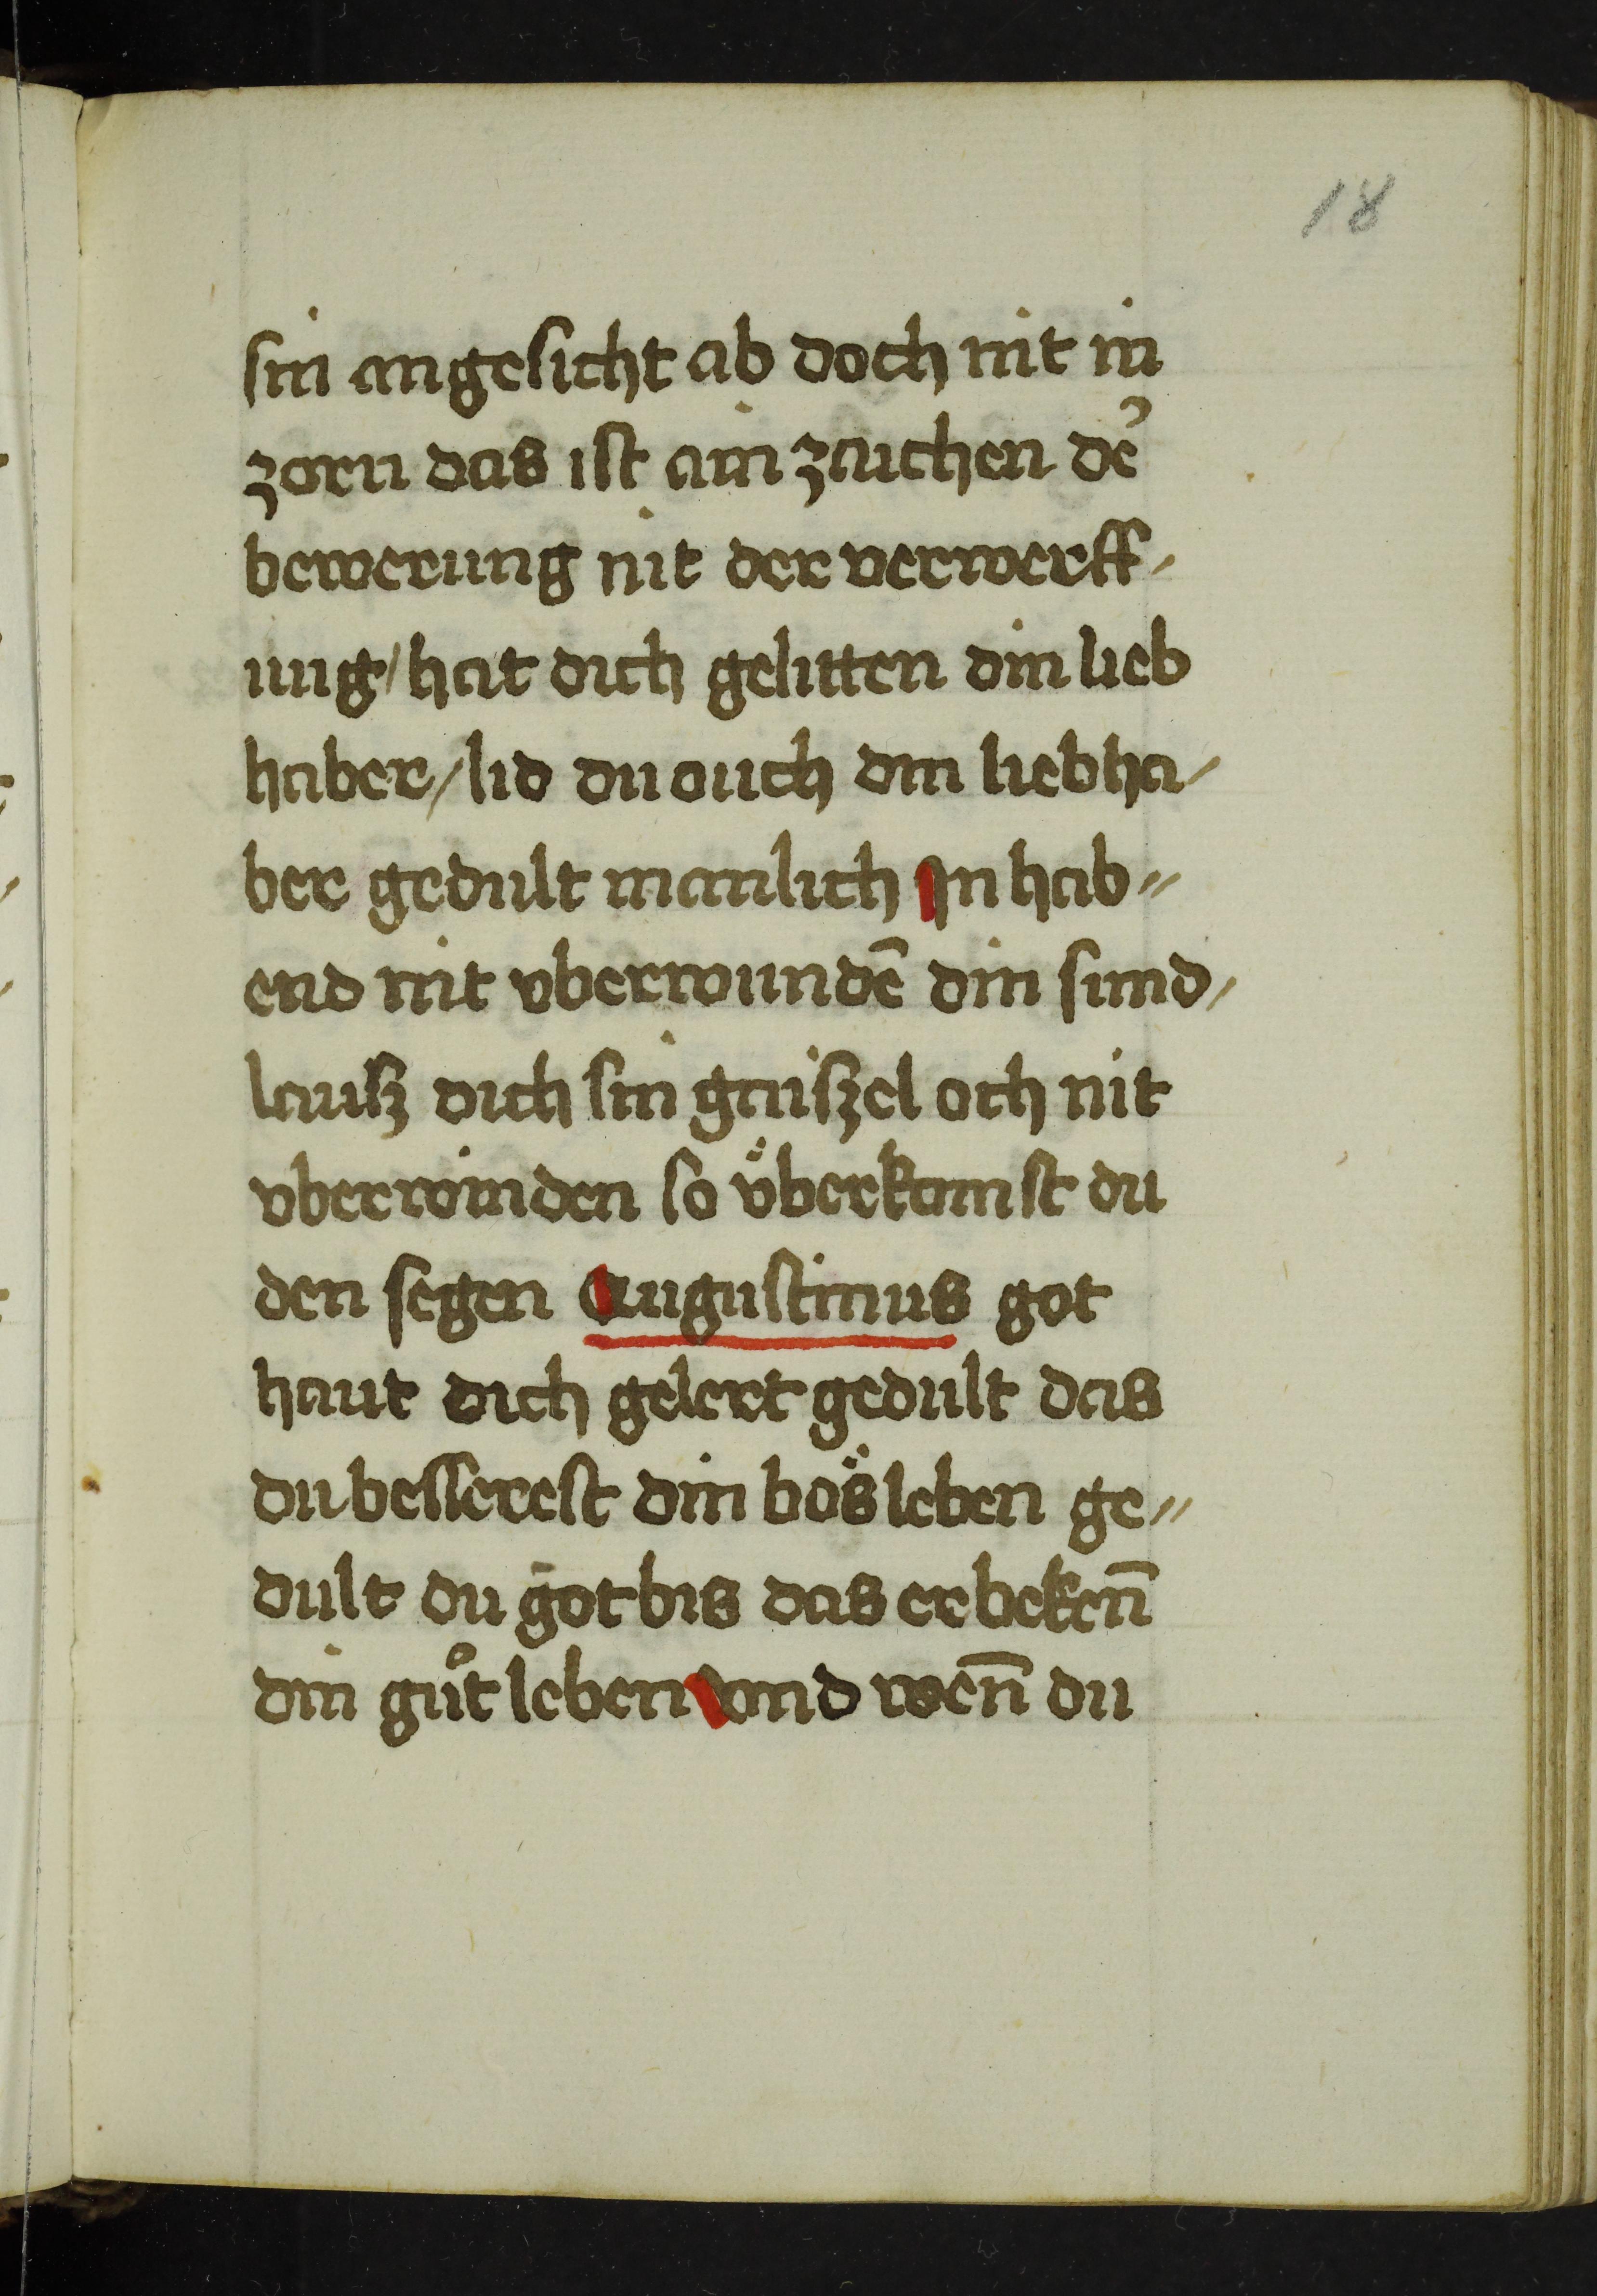 18
sin angesicht ab doch nit in
zorn das ist ain zaichen de᷑
bewerung nit der verwerff-
ung / hat dich gelitten din lieb
haber / lid du ouch din liebha-
ber gedult manlich In hab=
end nit vberwundē din sünd,
lausz dich sin gaiszel och nit
vberwinden so v̈berkamst du
den segen Augustinus got
haut dich gelert gedult das
du besserest din bös leben ge=
dult du got bis das er bekēn
din gůt leben vnd wen̄ du